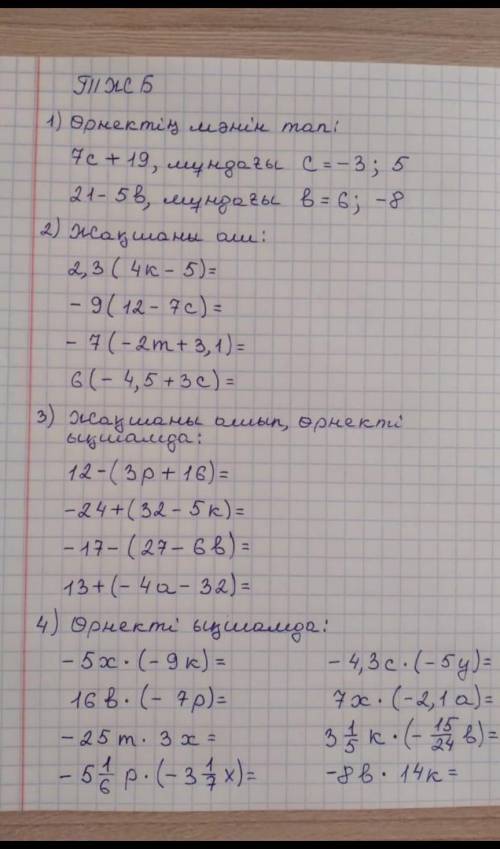 ТЖБ
1) Өрнектің мәнін тап:
7c + 19, мұндағы c = -3; 5
21 - 5в, мұндағы в = 6; -8
2) Жақшаны аш:
2,3 ( 4к - 5) =
- 9( 12 - 7с) =
- 7 (-2m + 3,1) =
6 (- 4,5 + 3с) =
3) Жақшаны ашып, өрнекті
ықшамда:
12 - (3р + 16) =
-24 + (32 - 5к) =
-17 - (27 - 6в) =
13 + (- 4а - 32) =
4) Өрнекті ықшамда:
- 5х · (- 9к) =
- 4,3с · (- 5у) =
16в · (- 7р) =
7х · (-2,1а) =
- 25m · 3х =
3 1/5 к · (- 15/24 в) =
- 5 1/6 р · (- 3 1/7 х) =
-8в · 14к =